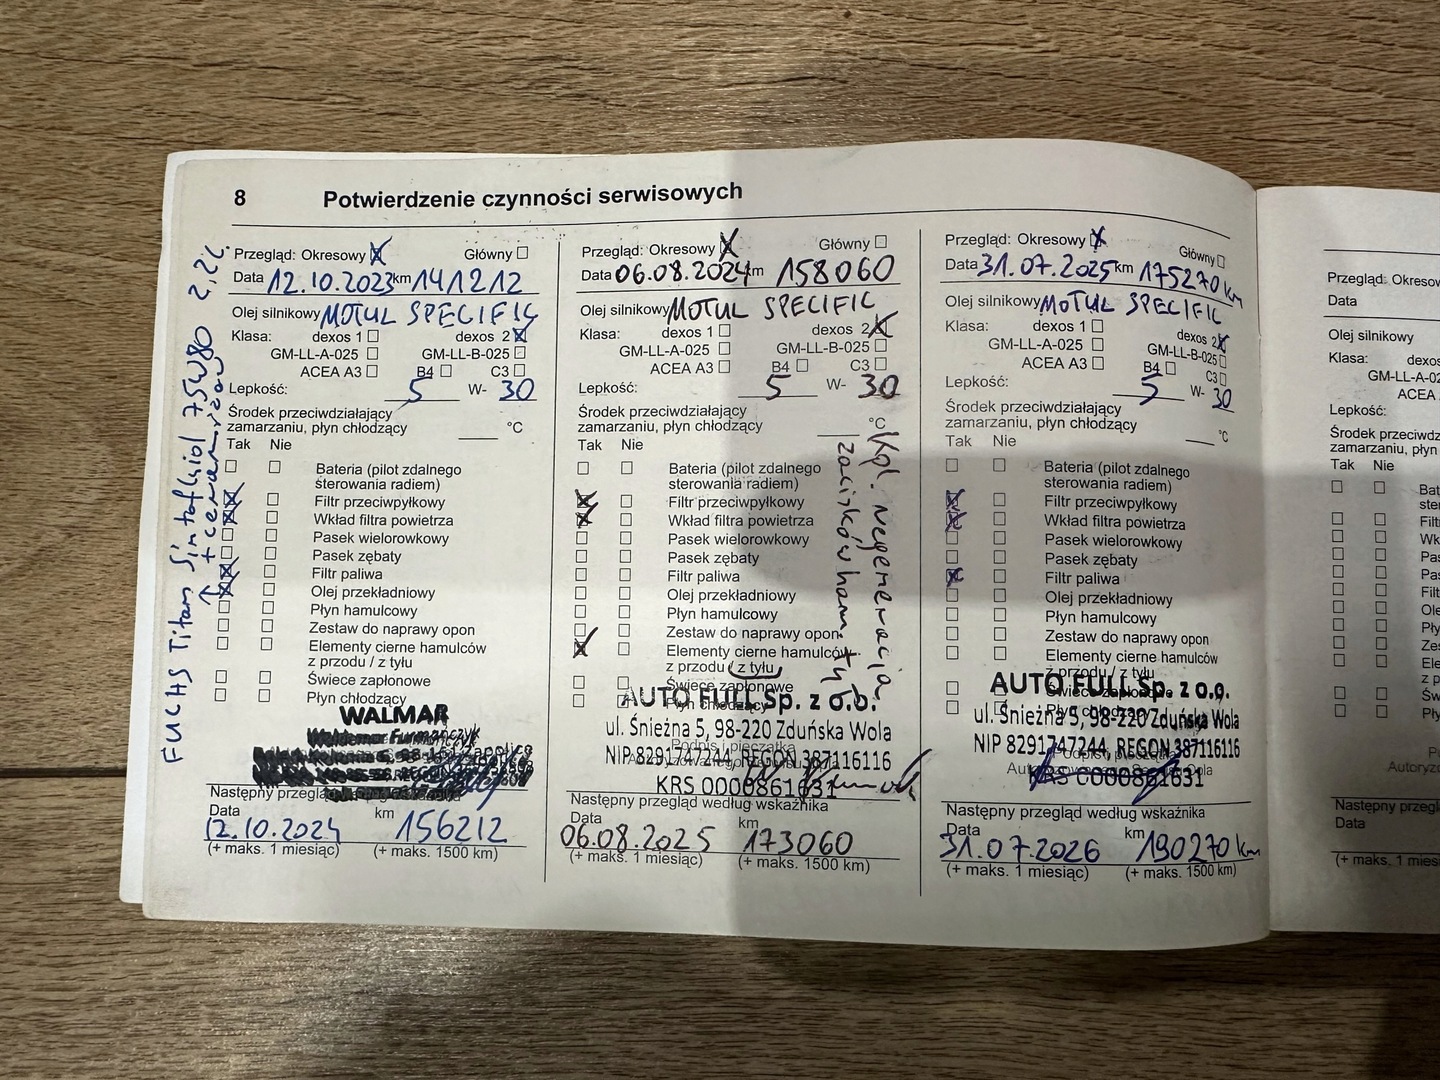 8 Potwierdzenie czynności serwisowych
Przegląd: Okresowy X Główny
Data 12.10.2023 km 141212
Olej silnikowy MOTUL SPECIFIC
Klasa: dexos 1 dexos 2
GM-LL-A-025 GM-LL-B-025
ACEA A3 B4 C3
Lepkość: 5 W- 30
Środek przeciwdziałający
zamarzaniu, płyn chłodzący °C
Tak Nie
Bateria (pilot zdalnego
sterowania radiem)
Filtr przeciwpyłkowy
Wkład filtra powietrza
Pasek wielorowkowy
Pasek zębaty
Filtr paliwa
Olej przekładniowy
Płyn hamulcowy
Zestaw do naprawy opon
Elementy cierne hamulców
z przodu / z tyłu
Świece zapłonowe
Płyn chłodzący
WALMAR
Waldemar Furmańczyk
Następny przegląd
Data km
12.10.2024 156212
(+ maks. 1 miesiąc) (+ maks. 1500 km)
FUCHS Titan Sintofluid 75W80 2,2L.
Przegląd: Okresowy X Główny
Data 06.08.2024 km 158060
Olej silnikowy MOTUL SPECIFIC
Klasa: dexos 1 dexos 2
GM-LL-A-025 GM-LL-B-025
ACEA A3 B4 C3
Lepkość: 5 W- 30
Środek przeciwdziałający
zamarzaniu, płyn chłodzący °C
Tak Nie
Bateria (pilot zdalnego
sterowania radiem)
Filtr przeciwpyłkowy
Wkład filtra powietrza
Pasek wielorowkowy
Pasek zębaty
Filtr paliwa
Olej przekładniowy
Płyn hamulcowy
Zestaw do naprawy opon
Elementy cierne hamulców
z przodu / z tyłu
Świece zapłonowe
Płyn chłodzący
Kpl. regeneracja
zacisków ham. tył
AUTO FULL Sp. z o.o.
ul. Śnieżna 5, 98-220 Zduńska Wola
Podpis i pieczątka
NIP 8291747244, REGON 387116116
KRS 0000861631
Następny przegląd według wskaźnika
Data km
06.08.2025 173060
(+ maks. 1 miesiąc) (+ maks. 1500 km)
Przegląd: Okresowy X Główny
Data 31.07.2025 km 175270 km
Olej silnikowy MOTUL SPECIFIC
Klasa: dexos 1 dexos 2
GM-LL-A-025 GM-LL-B-025
ACEA A3 B4 C3
Lepkość: 5 W- 30
Środek przeciwdziałający
zamarzaniu, płyn chłodzący °C
Tak Nie
Bateria (pilot zdalnego
sterowania radiem)
Filtr przeciwpyłkowy
Wkład filtra powietrza
Pasek wielorowkowy
Pasek zębaty
Filtr paliwa
Olej przekładniowy
Płyn hamulcowy
Zestaw do naprawy opon
Elementy cierne hamulców
z przodu / z tyłu
Świece zapłonowe
Płyn chłodzący
AUTO FULL Sp. z o.o.
ul. Śnieżna 5, 98-220 Zduńska Wola
NIP 8291747244, REGON 387116116
KRS 0000861631
Następny przegląd według wskaźnika
Data km
31.07.2026 190270 km
(+ maks. 1 miesiąc) (+ maks. 1500 km)
Przegląd: Okresow
Data
Olej silnikowy
Klasa: dexos
GM-LL-A-02
ACEA
Lepkość:
Środek przeciwd
zamarzaniu, płyn
Tak Nie
Bat
ster
Filt
Wk
Pas
Pas
Filt
Ole
Pły
Zes
Ele
z p
Świ
Pły
Autoryzo
Następny przeglą
Data
(+ maks. 1 miesi